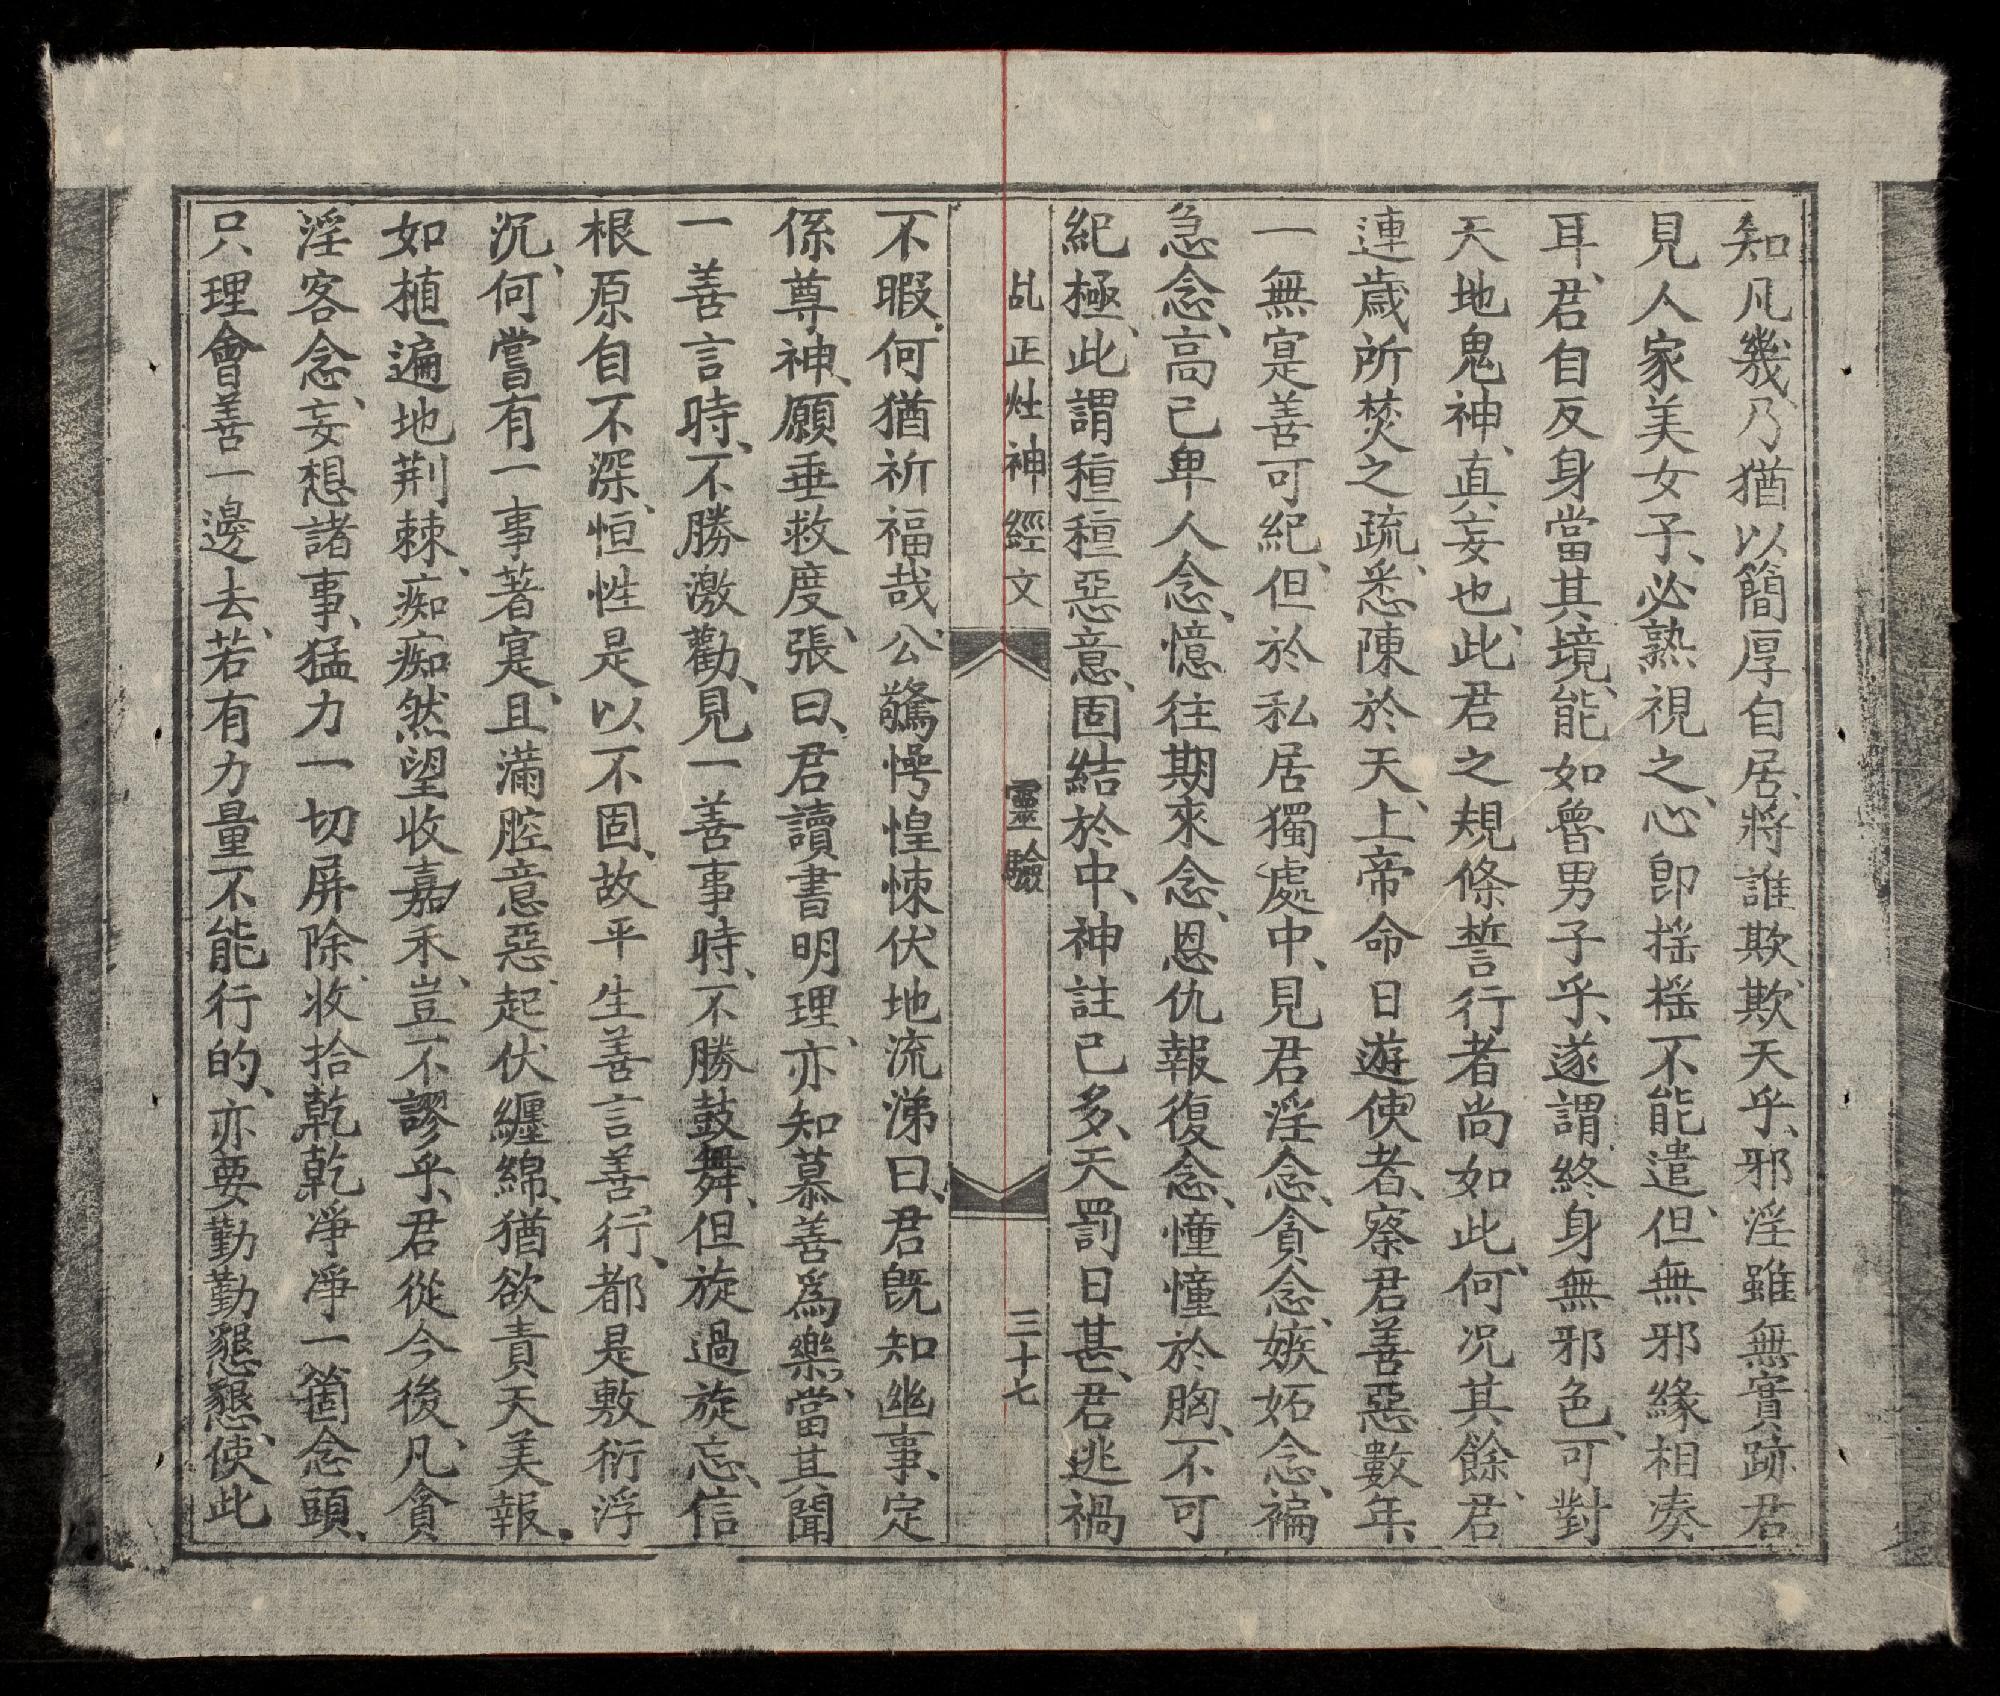 知凡幾、乃猶以簡厚自居、將誰欺、欺天乎、邪淫雖無實跡、君
見人家美女子、必熟視之、心卽搖搖不能遣、但無邪緣相凑
耳、君自反身當其境、能如魯男子乎、遂謂終身無邪色、可對
天地鬼神、真妄也、此君之規條誓行者尚如此、何况其餘、君
連歲所焚之疏、悉陳於天、上帝命日遊使者、察君善惡數年、
一無寔善可紀、但於私居獨處中、見君淫念、貪念、嫉妬念、褊
急念、高己卑人念、憶往期來念、恩仇報復念、憧憧於胸、不可
紀極、此謂種種惡意、固結於中、神註已多、天罰日甚、君逃禍
乩正灶神經文 靈驗 三十七
不暇、何猶祈福哉、公驚愕惶悚伏地流涕曰、君旣知幽事、定
係尊神、願垂救度、張曰、君讀書明理、亦知慕善爲樂、當其聞
一善言時、不勝激勸、見一善事時、不勝鼓舞、但旋過旋忘、信
根原自不深、恒性是以不固、故平生善言善行、都是敷衍浮
沉、何嘗有一事著寔、且滿腔意惡、起伏纏綿、猶欲責天美報、
如植遍地荆棘、痴痴然望收嘉禾、豈不謬乎、君從今後、凡貪
淫客念、妄想諸事、猛力一切屏除、收拾乾乾凈凈一箇念頭、
只理會善一邊去、若有力量不能行的、亦要勤勤懇懇、使此